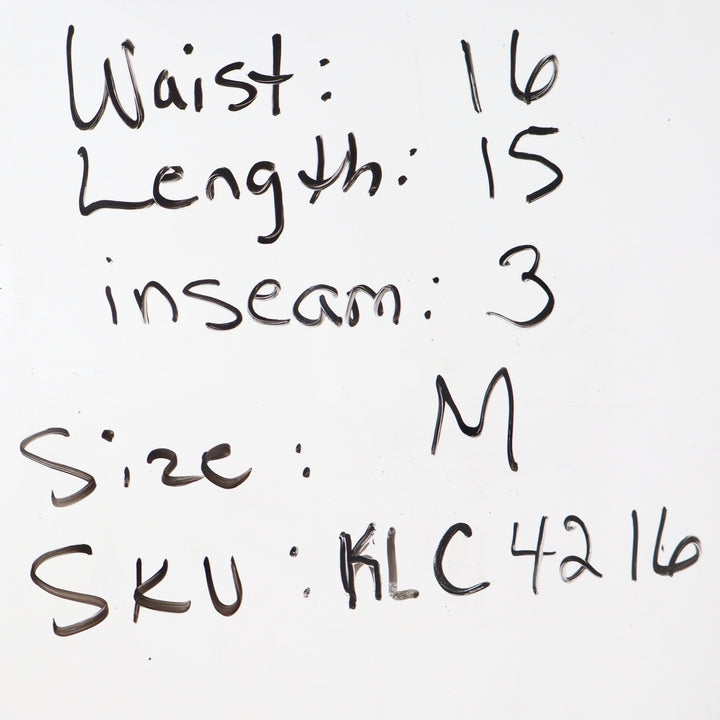 Waist: 16
Length: 15
inseam: 3
Size: M
SKU: KLC4216